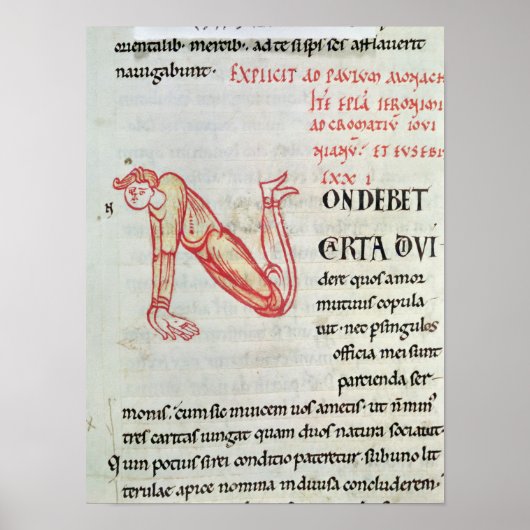 orientalib· mercib·, ad te suspi ses afflauerit
nauigabunt·
EXPLICIT AD PAULUM MONACH
ITĒ EPLA IERONIMI
AD CROMATIŪ IOVI
NIANŪ· ET EUSEBI
LXX I
N
ON DEBET
CARTA DIVI
dere quos amor
mutuus copula
uit· nec p singulos
officia mei sunt
partienda ser
monis, cum sic inuicem uos ametis· ut n̄ min'
tres caritas iungat quam duos natura sociauit·
Quin potius si rei conditio pateretur· sub uno lit
terulae apice nomina indiuisa concluderem·